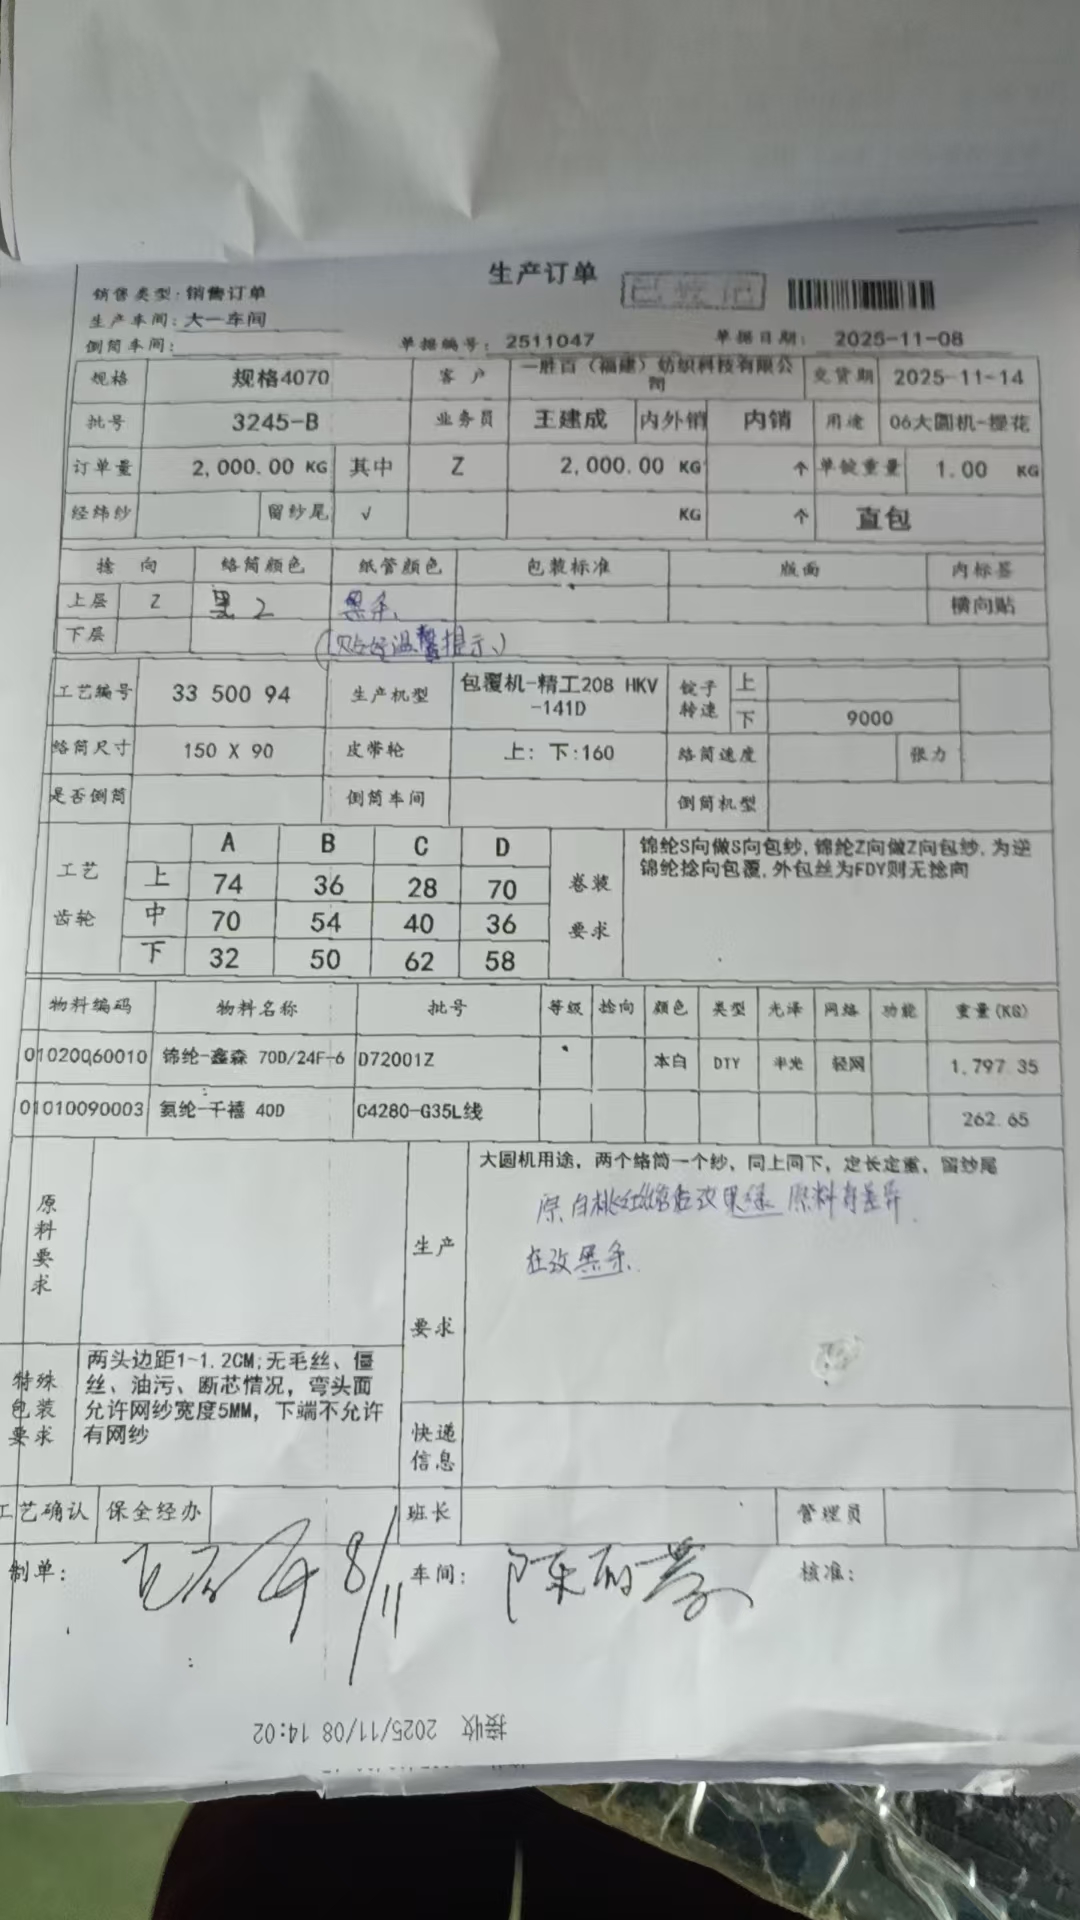 生产订单
销售类型: 销售订单
生产车间: 大一车间
倒筒车间:
单据编号: 2511047 单据日期: 2025-11-08
规格 规格4070 客户 一胜百（福建）纺织科技有限公司 交货期 2025-11-14
批号 3245-B 业务员 王建成 内外销 内销 用途 06大圆机-提花
订单量 2,000.00 KG 其中 Z 2,000.00 KG 个 单锭重量 1.00 KG
经纬纱 留纱尾 √ KG 个 直包
捻向 络筒颜色 纸管颜色 包装标准 版面 内标签
上层 Z 黑2 黑条、 横向贴
下层
工艺编号 33 500 94 生产机型 包覆机-精工208 HKV-141D 锭子转速 上
下 9000
络筒尺寸 150 X 90 皮带轮 上: 下:160 络筒速度 张力
是否倒筒 倒筒车间 倒筒机型
工艺齿轮 A B C D
上 74 36 28 70
中 70 54 40 36
下 32 50 62 58
卷装要求
锦纶S向做S向包纱,锦纶Z向做Z向包纱,为逆
锦纶捻向包覆,外包丝为FDY则无捻向
物料编码 物料名称 批号 等级 捻向 颜色 类型 光泽 网络 功能 重量(KG)
01020060010 锦纶-鑫森 70D/24F-6 D72001Z 本白 DTY 半光 轻网 1,797.35
01010090003 氨纶-千禧 40D C4280-G35L线 262.65
原料要求
生产要求
大圆机用途，两个络筒一个纱、同上同下，定长定重、留纱尾
原料有差异
在改黑条.
特殊包装要求
两头边距1-1.2CM;无毛丝、僵
丝、油污、断芯情况，弯头面
允许网纱宽度5MM，下端不允许
有网纱
快递信息
工艺确认 保全经办 班长 管理员
制单: 8/11 车间: 核准:
接收 2025/11/08 14:02